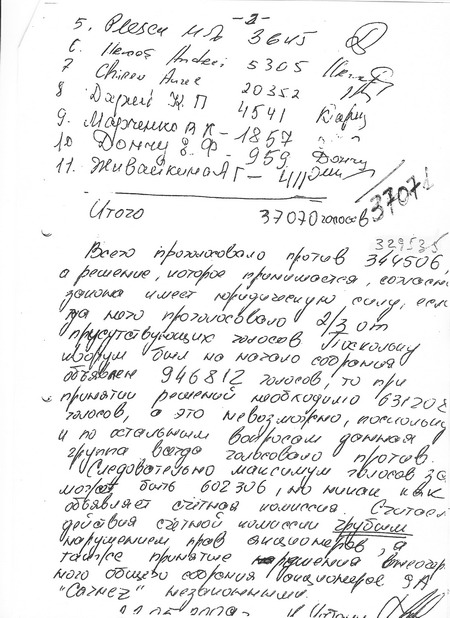 -2-
5. Plesca M 3645
6. Nemos Andrei 5305
7 Chirev Aurel 20352
8 Дарий К. П 4541
9. Марченко В К - 1857
10 Дончу З. Ф - 959 Дончу
11. Живайкина А Г -
37071
Итого 37070 голосов
329535
Всего проголосовало против 344506,
а решение, которое принимается, согласно
закона имеет юридическую силу, если
за него проголосовало 2/3 от
присутствующих голосов Поскольку
кворум был на начало собрания
объявлен 946812 голосов, то при
принятии решений необходимо 631208
голосов, а это невозможно, поскольку
и по остальным вопросам данная
группа всегда голосовало против.
Следовательно максимум голосов за
может быть 602306, но никак как
объявляет счётная комиссия. Считаем
действия счётной комиссии грубым
нарушением прав акционеров, а
также принятие решения
ного общего собрания акционеров ЭА
незаконными.